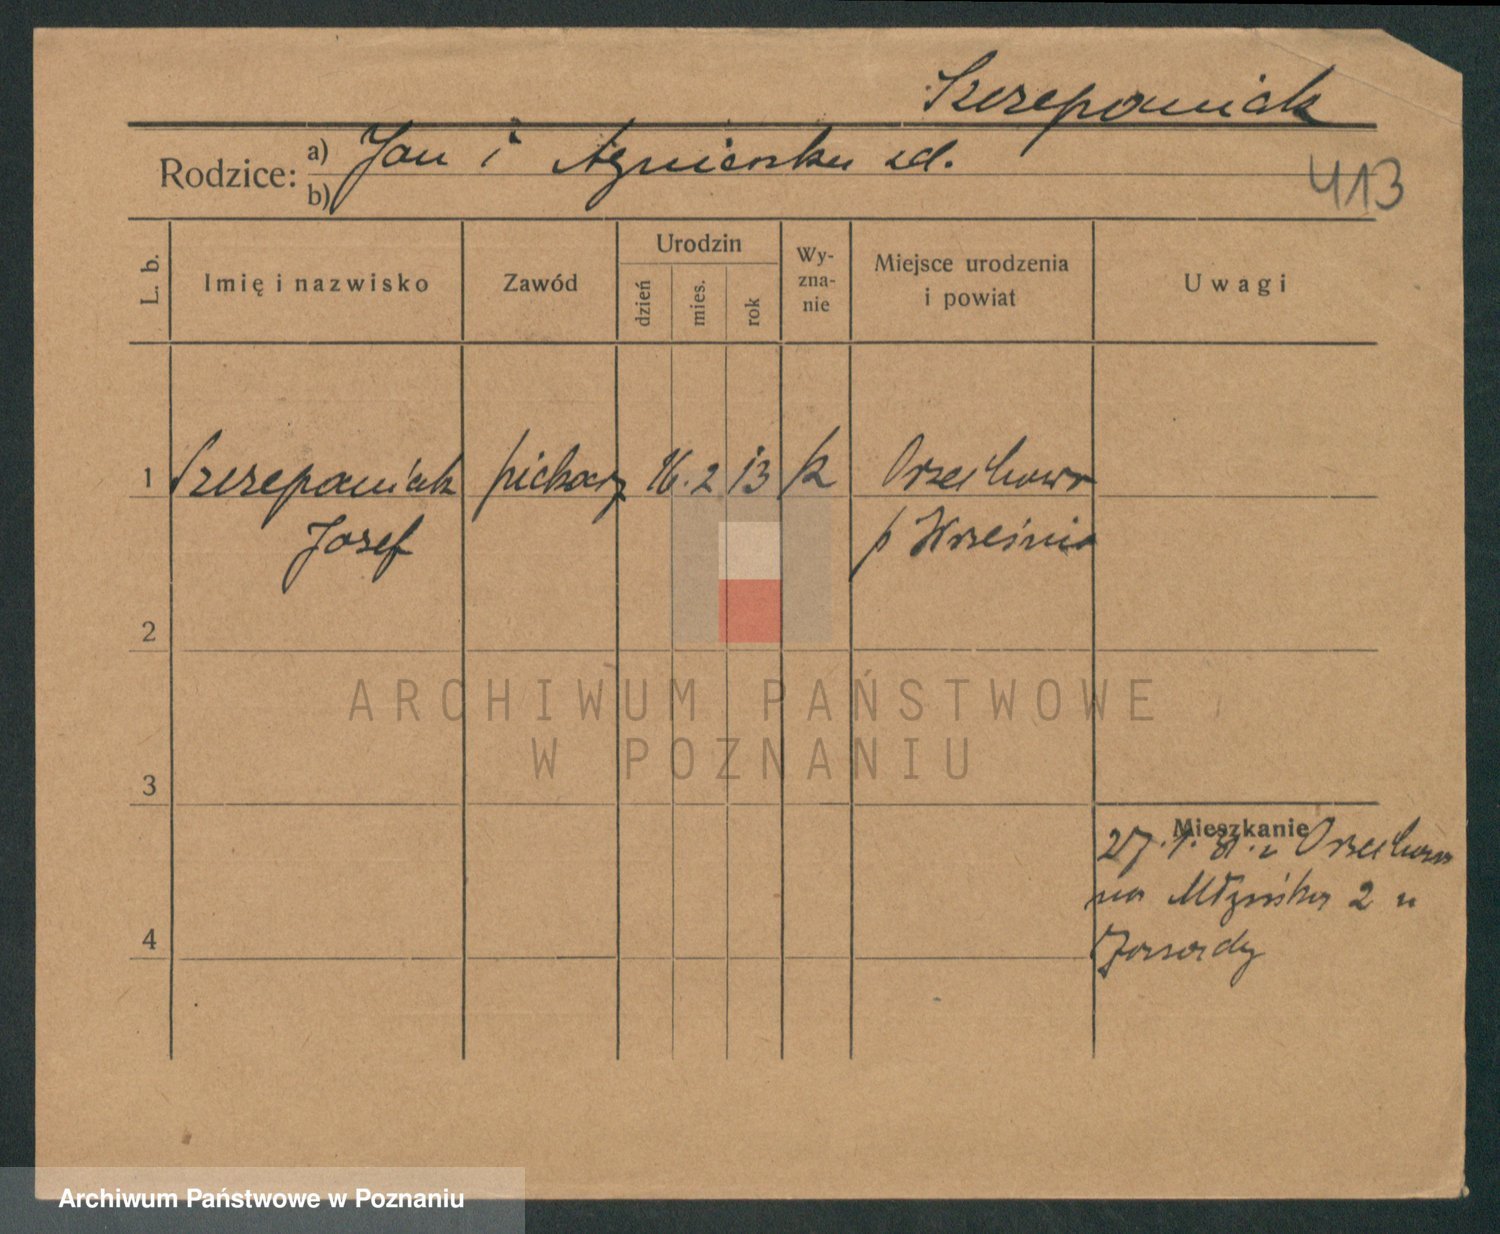 Szczepaniak
Rodzice: a) Jan i Agnieszka zd.
b)
413
L. b. Imię i nazwisko Zawód Urodzin dzień mies. rok Wy-zna-nie Miejsce urodzenia i powiat Uwagi
1 Szczepaniak piekarz 16. 2 13 k Orzechowo
Josef p Września
2
ARCHIWUM PAŃSTWOWE
W POZNANIU
3
Mieszkanie
27. 1. z Orzechowa
na Młyńska 2 u
4
Archiwum Państwowe w Poznaniu